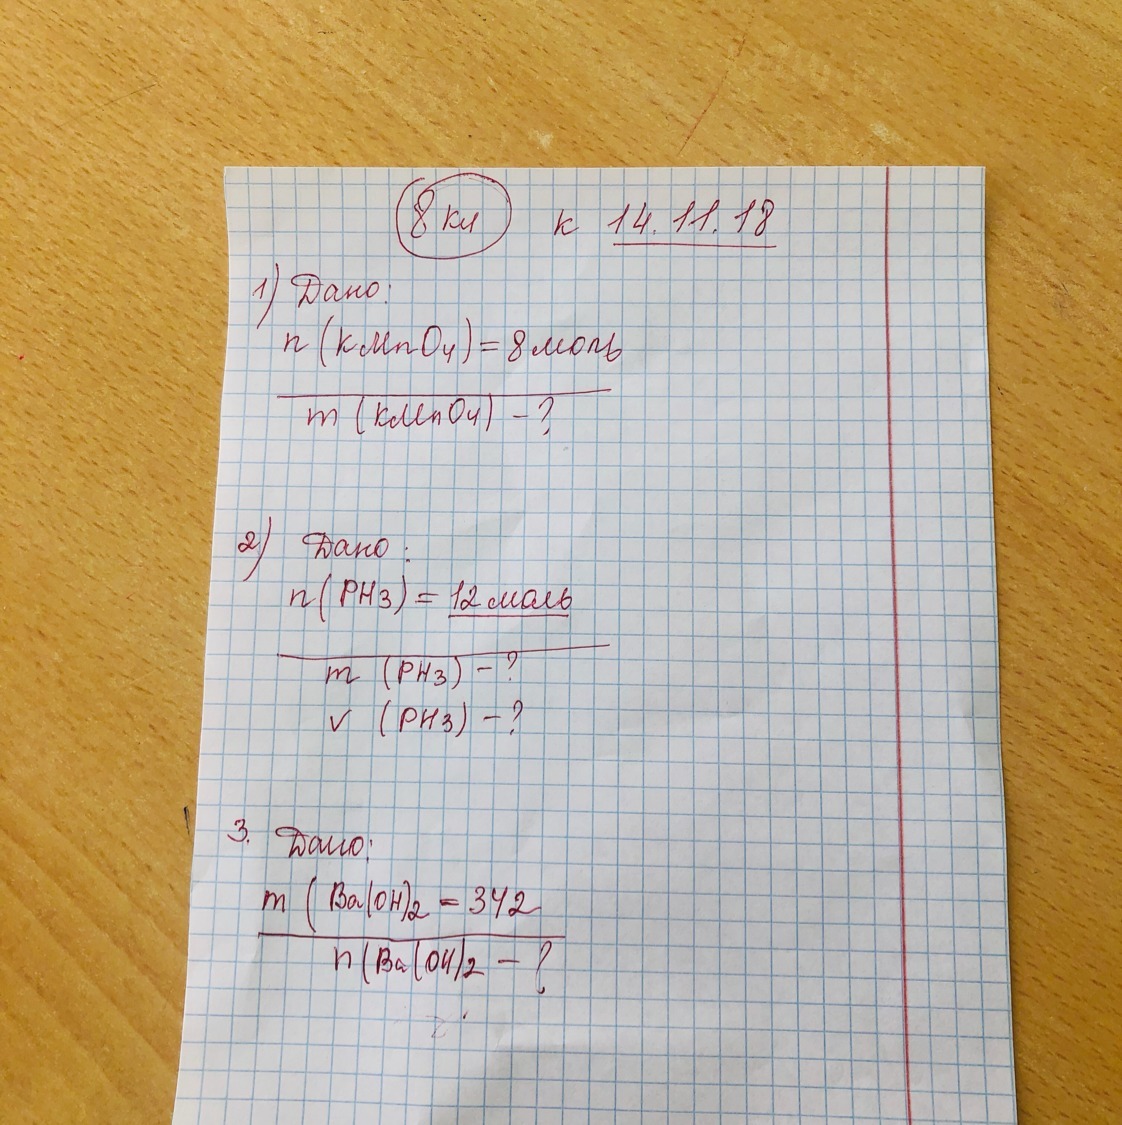 8 кл к 14.11.18
1) Дано:
n (KMnO4) = 8 моль
m (KMnO4) - ?
2) Дано:
n (PH3) = 12 моль
m (PH3) - ?
V (PH3) - ?
3. Дано:
m (Ba(OH)2 = 342
n (Ba(OH)2 - ?